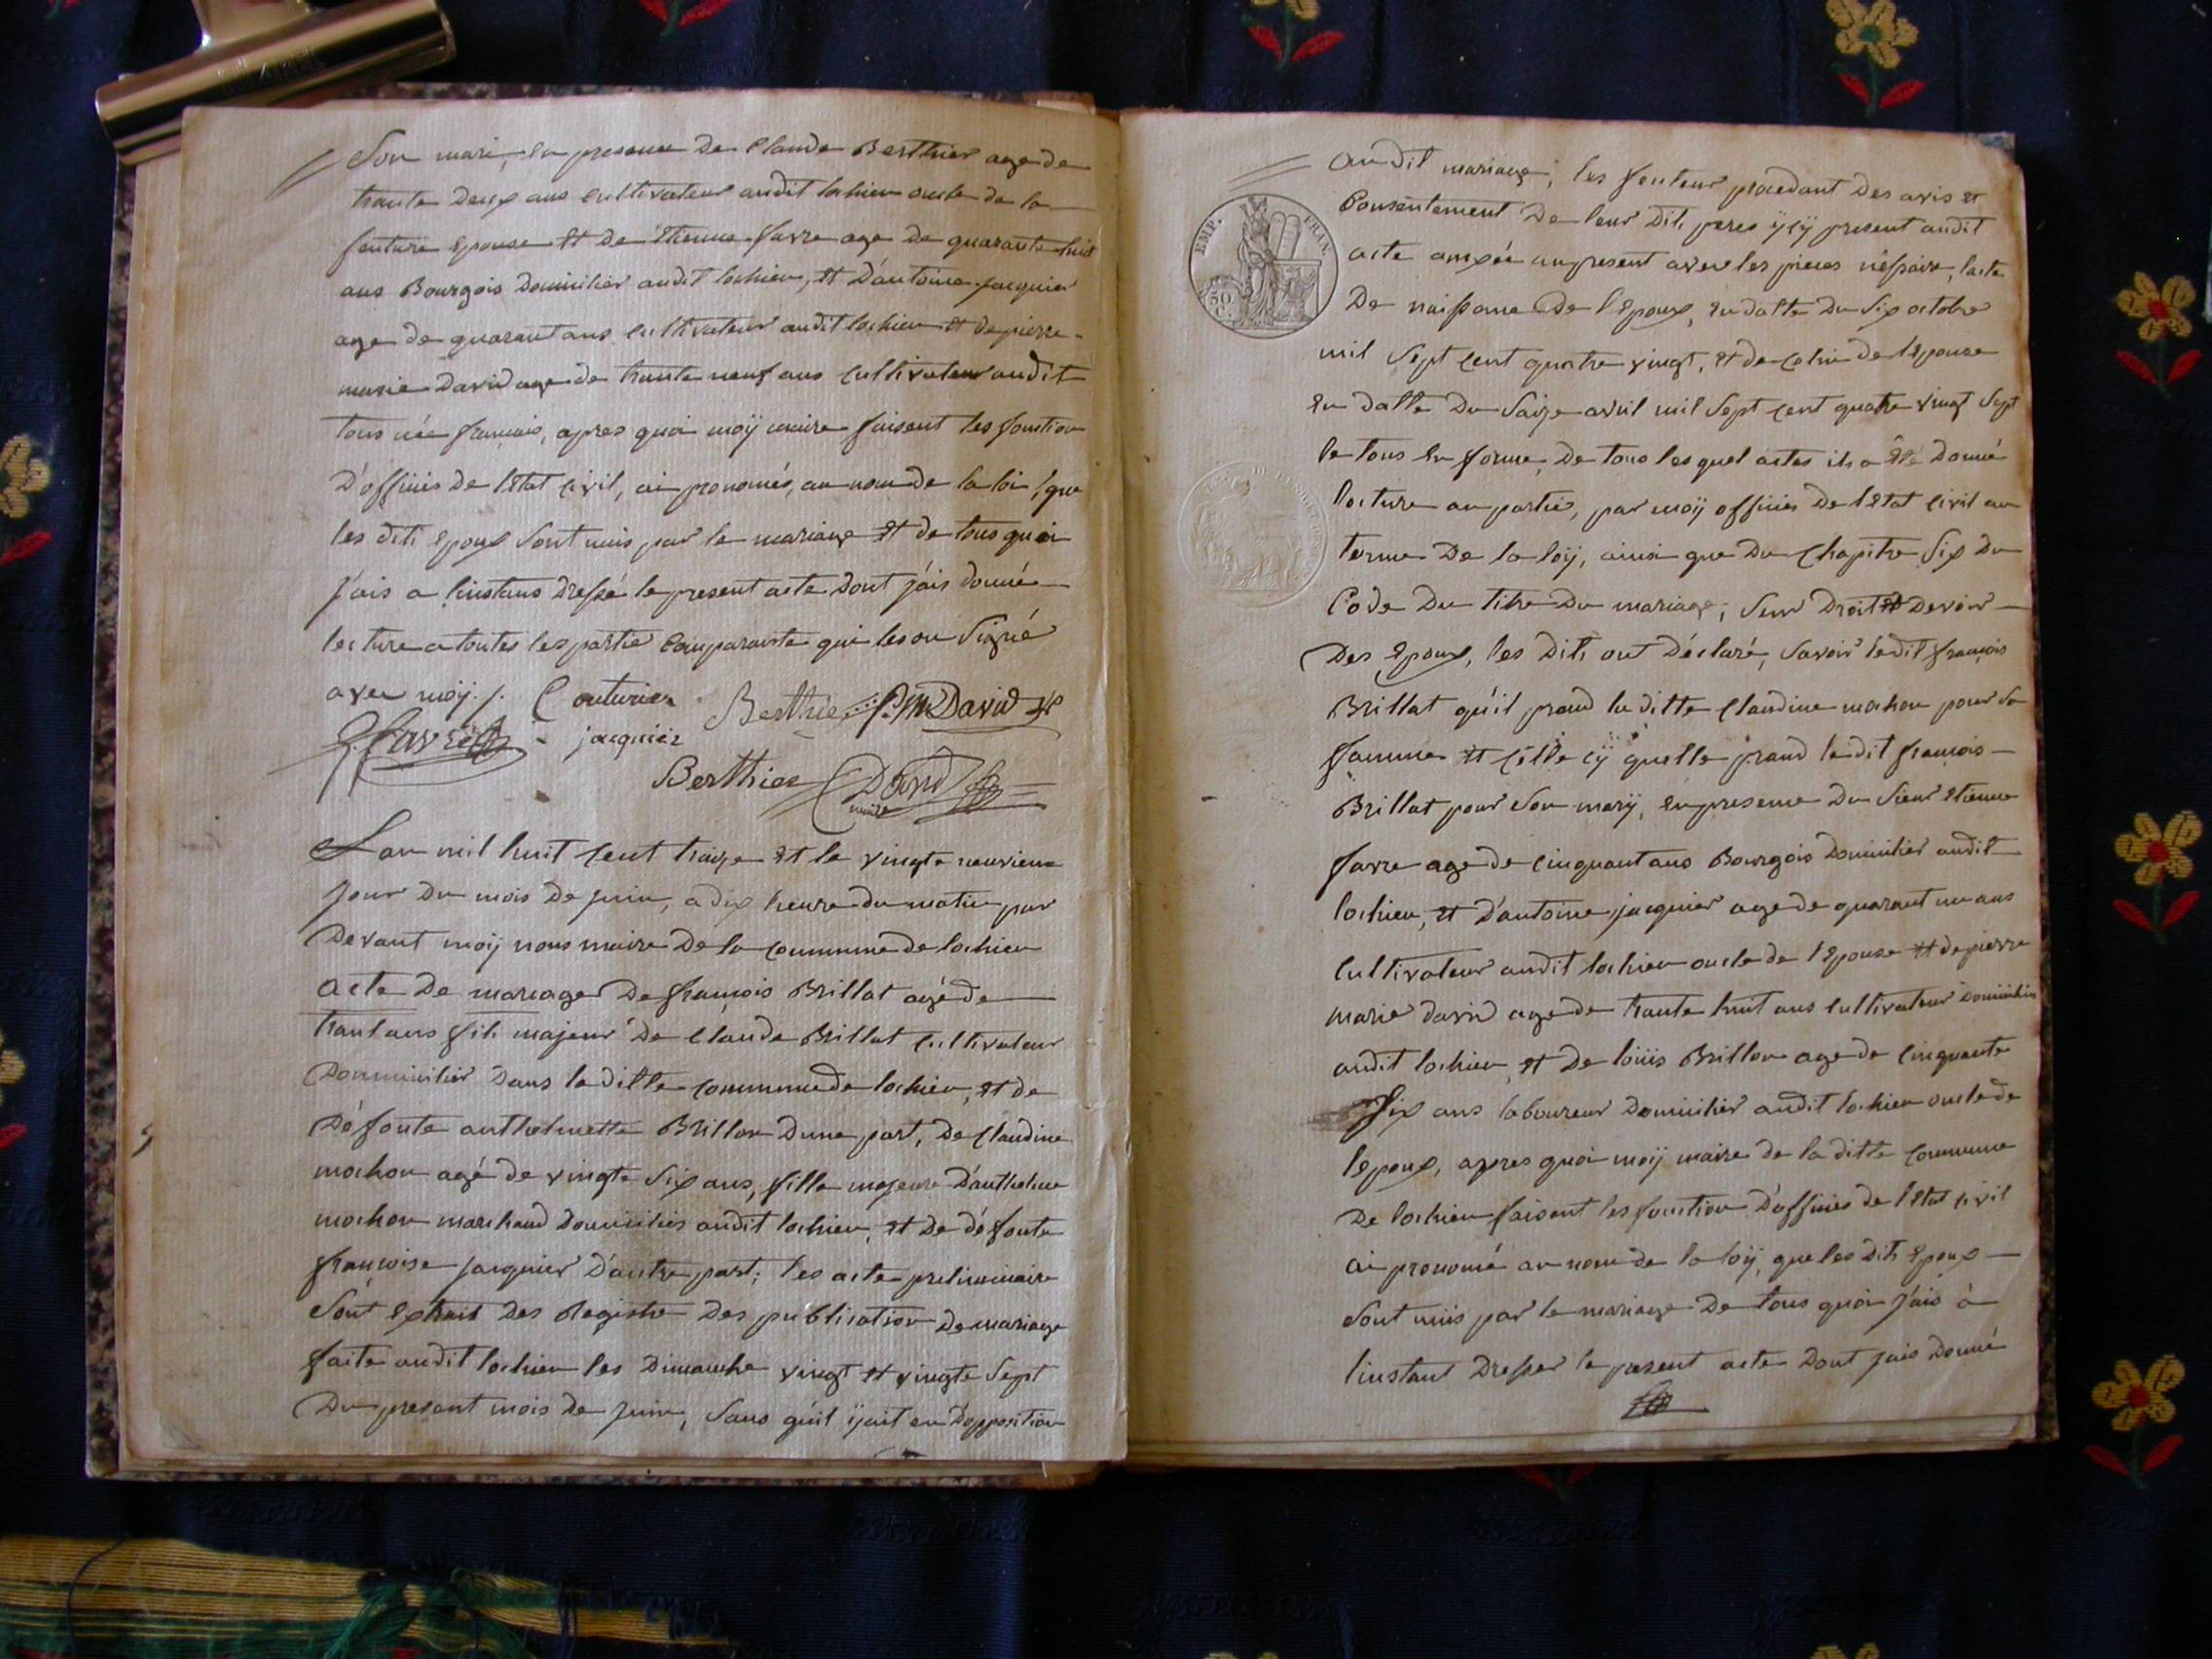 Son mari, en presence de Claude Berthier age de
trante deux ans cultivateur audit lochieu oncle de la
feuture epouse et de étienne favre age de quarante huit
ans Bourgois domicilier audit lochieu, et d'antoine jacquier
age de quarant ans cultivateur audit lochieu et de pierre
marie David age de trante neuf ans cultivateur audit
tous née francais, apres quoi moÿ maire faisent les fonction
d'officies de l'état civil, ai pronomés, au nom de la loi, que
les dits epoux sont unis par le mariage et de tous quoi
j'ais a linstans dressé le present acte dont j'ais donné
lecture a toutes les partie comparante qui les on signé
avec moÿ. /. Couturier Berthier P. M David
favre jacquier
Berthier David
maire
Lan mil huit cent traize et le vingte neuvieme
jour du mois de juin, a dix heure du matin par
Devant moÿ nous maire de la commune de lochieu
acte de mariage de francois Brillat agé de
trant ans fils majeur de Claude Brillat cultivateur
Dommicilier dans la ditte commune de lochieu, et de
défonte anthelmette Brillon dune part, de Claudine
mochon agé de vingte six ans, fille majeure d'anthelme
mochon marchand domicilier audit lochieu, et de défonte
francoise jacquier d'autre part; les acte preliminaire
sont extrait des Registre des publication de mariage
faite audit lochieu les dimanche vingt et vingte sept
Du present mois de juin, sans quil ÿ ait eu d'opposition
audit mariage, les feuteur procedant des avis et
EMP. FRAN.
50 C.
Consentement de leur dits peres ÿcÿ present audit
acte anixée au present avec les pieces nessaire, lacte
De naissance de l'Epoux, en datte du six octobre
mil sept cent quatre vingt, et de celui de l'Epouse
en datte du saize avril mil sept cent quatre vingt sept
le tous en forme, de tous les quel actes ils a été donné
lecture au partie, par moÿ officies de l'état civil au
terme de la loÿ, ainsi que du chapitre six du
Code du titre du mariage, seur droit et devoir
Des Epoux, les dits ont déclaré, savoir ledit françois
Brillat qu'il prand la ditte Claudine mochon pour sa
famme et celle cÿ quelle prand ledit francois
Brillat pour son marÿ, en presence du sieur étienne
favre age de cinquant ans Bourgois domicilier audit
lochieu, et d'antoine jacquier age de quarant un ans
cultivateur audit lochieu oncle de l'Epouse et de pierre
marie david age de trante huit ans cultivateur domicilier
audit lochieu et de loüis Brillon age de cinquante
six ans laboureur domicilier audit lochieu oncle de
lepoux, apres quoi moÿ maire de la ditte commune
De lochieu faisent les fonction d'officies de l'état civil
ai pronomé au nom de la loÿ, que les dits Epoux
sont unis par le mariage de tous quoi j'ais à
linstant dresser le present acte dont jais donné